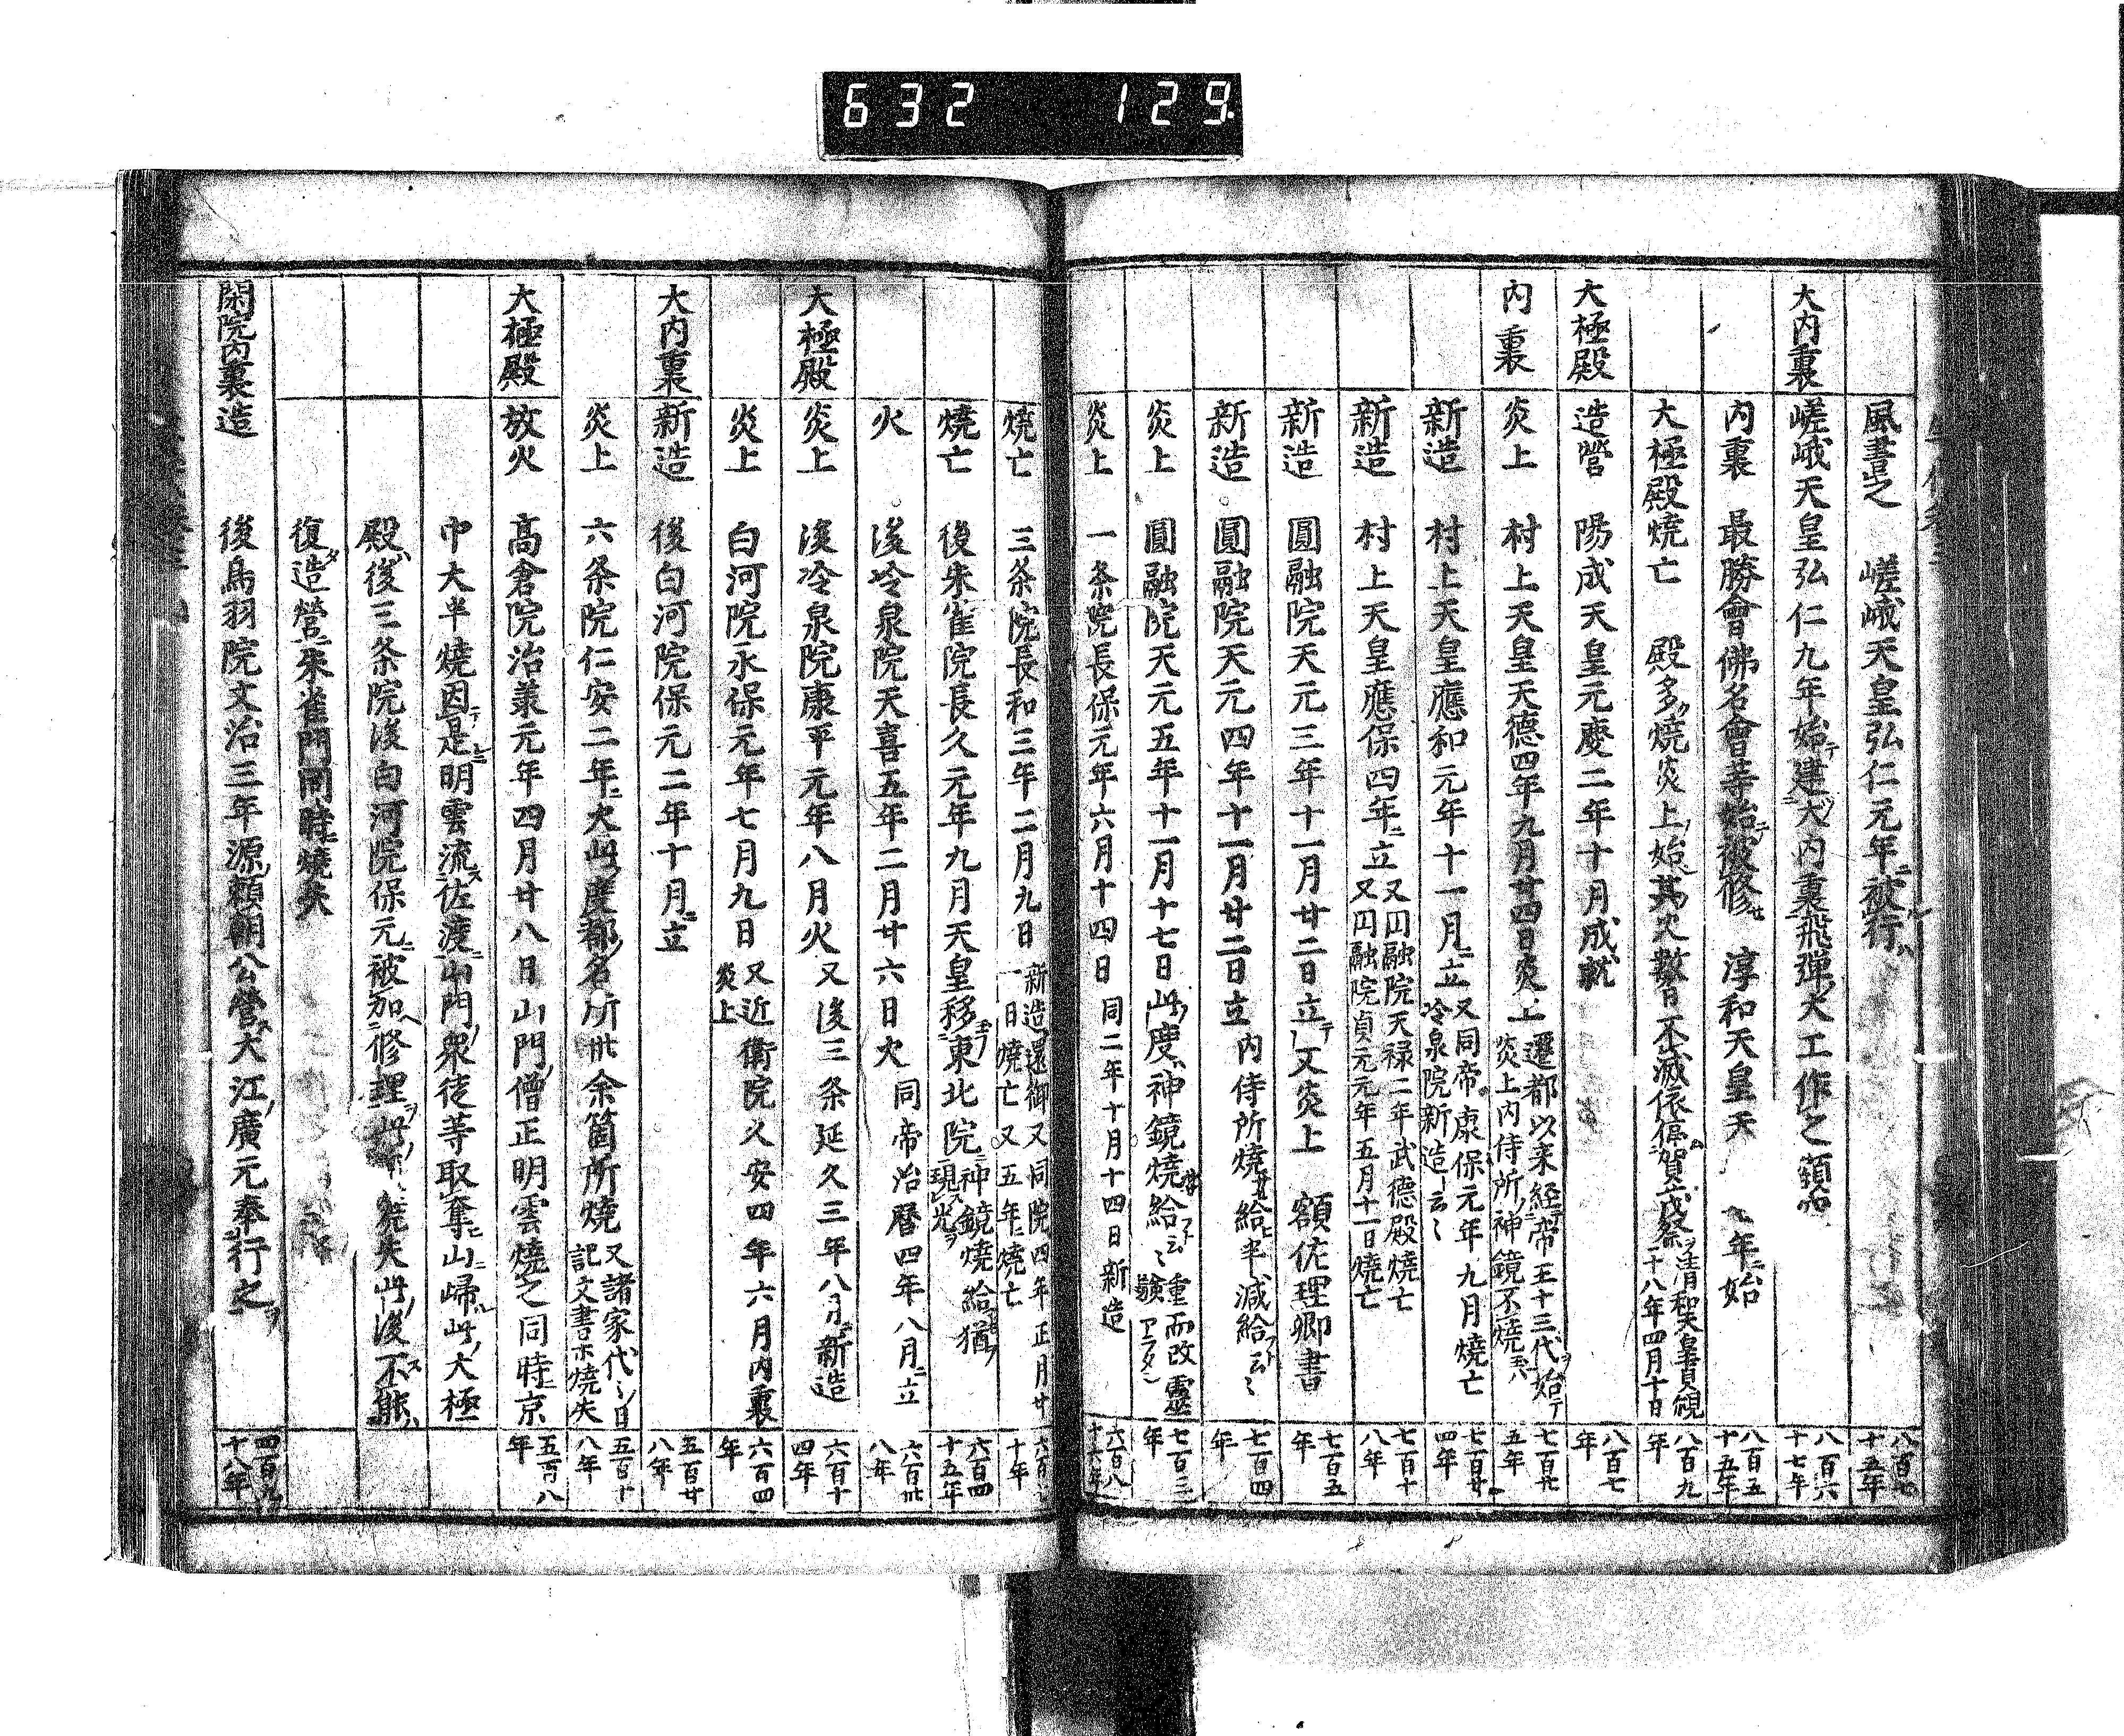 632 129
風書之 嵯峨天皇弘仁元年ニ被行 八百七十五年
大内裏 嵯峨天皇弘仁九年始テ建大内裏飛彈ノ大工作之額 八百六十七年
内裏 最勝會佛名會等始テ被修 淳和天皇天 年ニ始 八百五十五年
大極殿燒亡 殿多ク燒炎上ノ始也其火數日不滅依 賀茂祭ヲ清和天皇貞觀十八年四月十日 八百九年
大極殿 造營 陽成天皇元慶二年十月成就 八百七年
内裏 炎上 村上天皇天德四年九月廿四日炎上 遷都以来經帝王十三代ヲ始テ炎上内侍所ノ神鏡不燒玉ハ 七百廿五年
新造 村上天皇應和元年十一月ニ立 又同帝康保元年九月燒亡冷泉院新造云〻 七百廿四年
新造 村上天皇應保四年ニ立 又円融院天禄二年武德殿燒亡又円融院貞元元年五月十一日燒亡 七百十八年
新造 圓融院天元三年十一月廿二日立テ又炎上 額佐理卿書 七百五年
新造 圓融院天元四年十一月廿二日立 内侍所燒サセ給ヒ半減給フト云〻 七百四年
炎上 圓融院天元五年十一月十七日此ノ度ハ神鏡燒サセ給フト云〻 重而改靈驗アラタ也 七百三年
炎上 一条院長保元年六月十四日 同二年十月十四日新造 六百八十六年
燒亡 三条院長和三年二月九日 新造還御又同院四年正月廿一日燒亡又五年ニ燒亡 六百七十年
燒亡 後朱雀院長久元年九月天皇移玉フ東北院ニ 神鏡燒給猶ヲ現ス光ヲ 六百四十五年
火 後冷泉院天喜五年二月廿六日火 同帝治暦四年八月ニ立 六百卅八年
大極殿 炎上 後冷泉院康平元年八月火 又後三条延久三年八月ニ新造 六百十四年
炎上 白河院永保元年七月九日 又近衛院久安四年六月内裏炎上 六百四年
大内裏 新造 後白河院保元二年十月ニ立 五百廿八年
炎上 六条院仁安二年ニ火此ノ度都ノ名所卅余箇所燒 又諸家代〻ノ日記文書亦燒失 五百十八年
大極殿 放火 高倉院治兼元年四月廿八日山門ノ僧正明雲燒之同時ニ京 五百八年
中大半燒因テ是ニ明雲流ス佐渡ニ山門ノ衆徒等取奪ヒ山ニ歸ル此ノ大極
殿ハ後三条院後白河院保元ニ被加ヘ修理ヲ此 燒失此ノ後不ス能ハ
復タ造營ニ朱雀門同時ニ燒失
閑院内裏造 後鳥羽院文治三年源ノ頼朝公營ム大江ノ廣元奉行之ヲ 四百九十八年